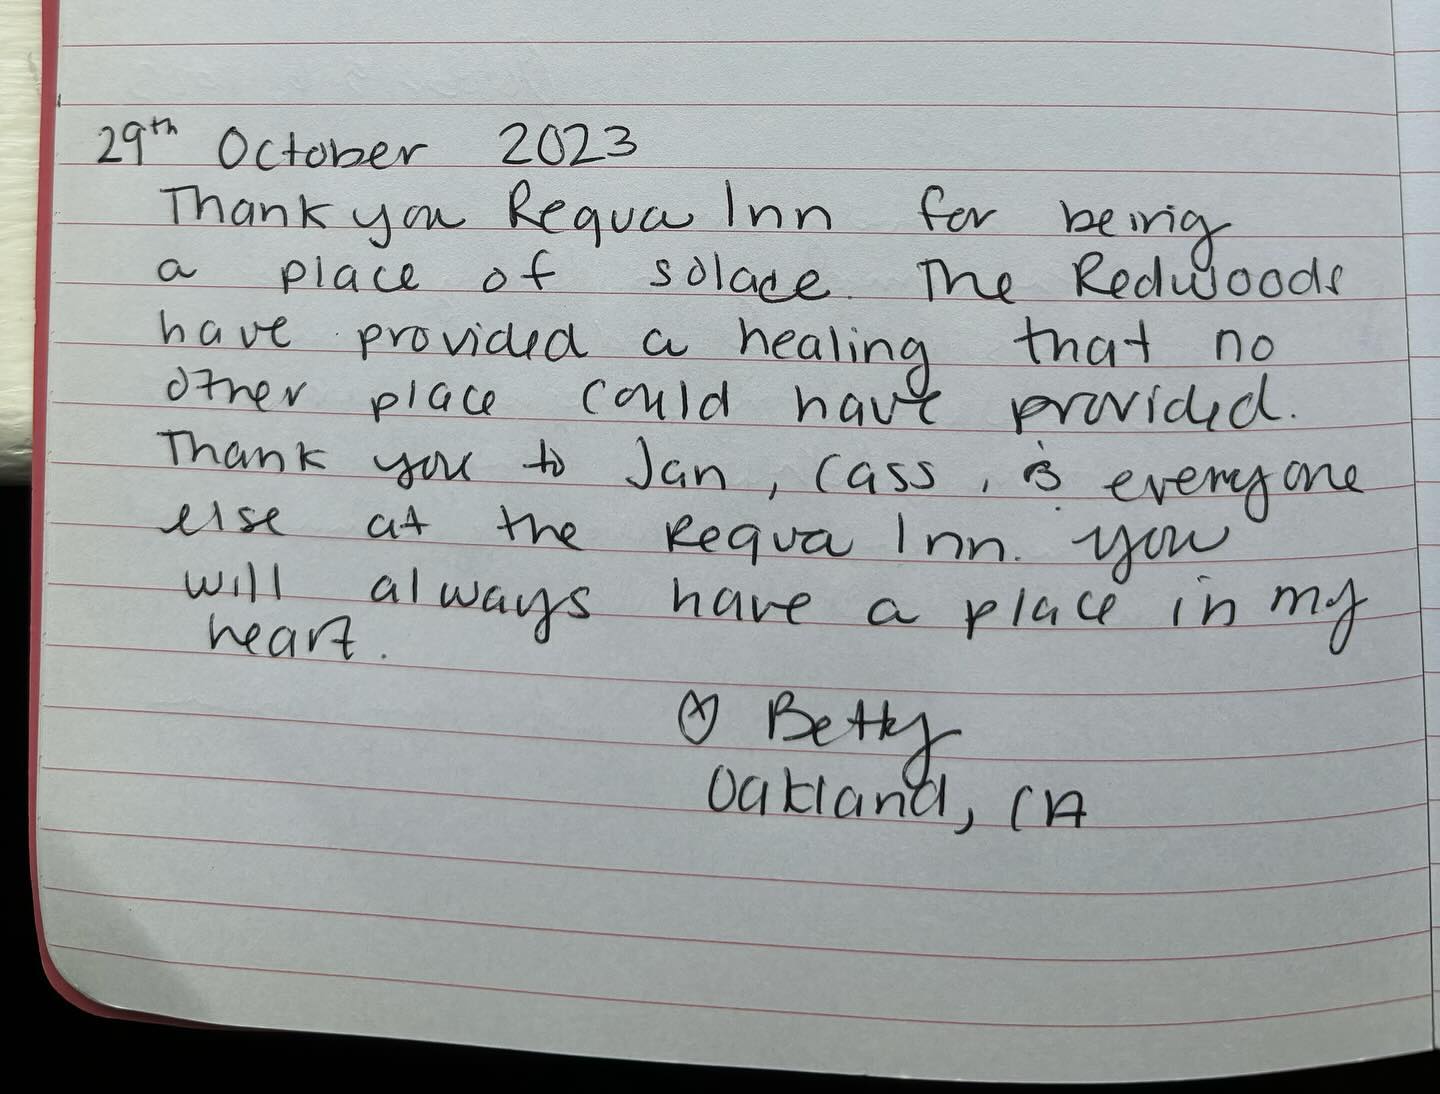 29th October 2023
Thank you Requa Inn for being
a place of solace. The Redwoods
have provided a healing that no
other place could have provided.
Thank you to Jan, Cass, & everyone
else at the Requa Inn. You
will always have a place in my
heart.
Betty
Oakland, CA